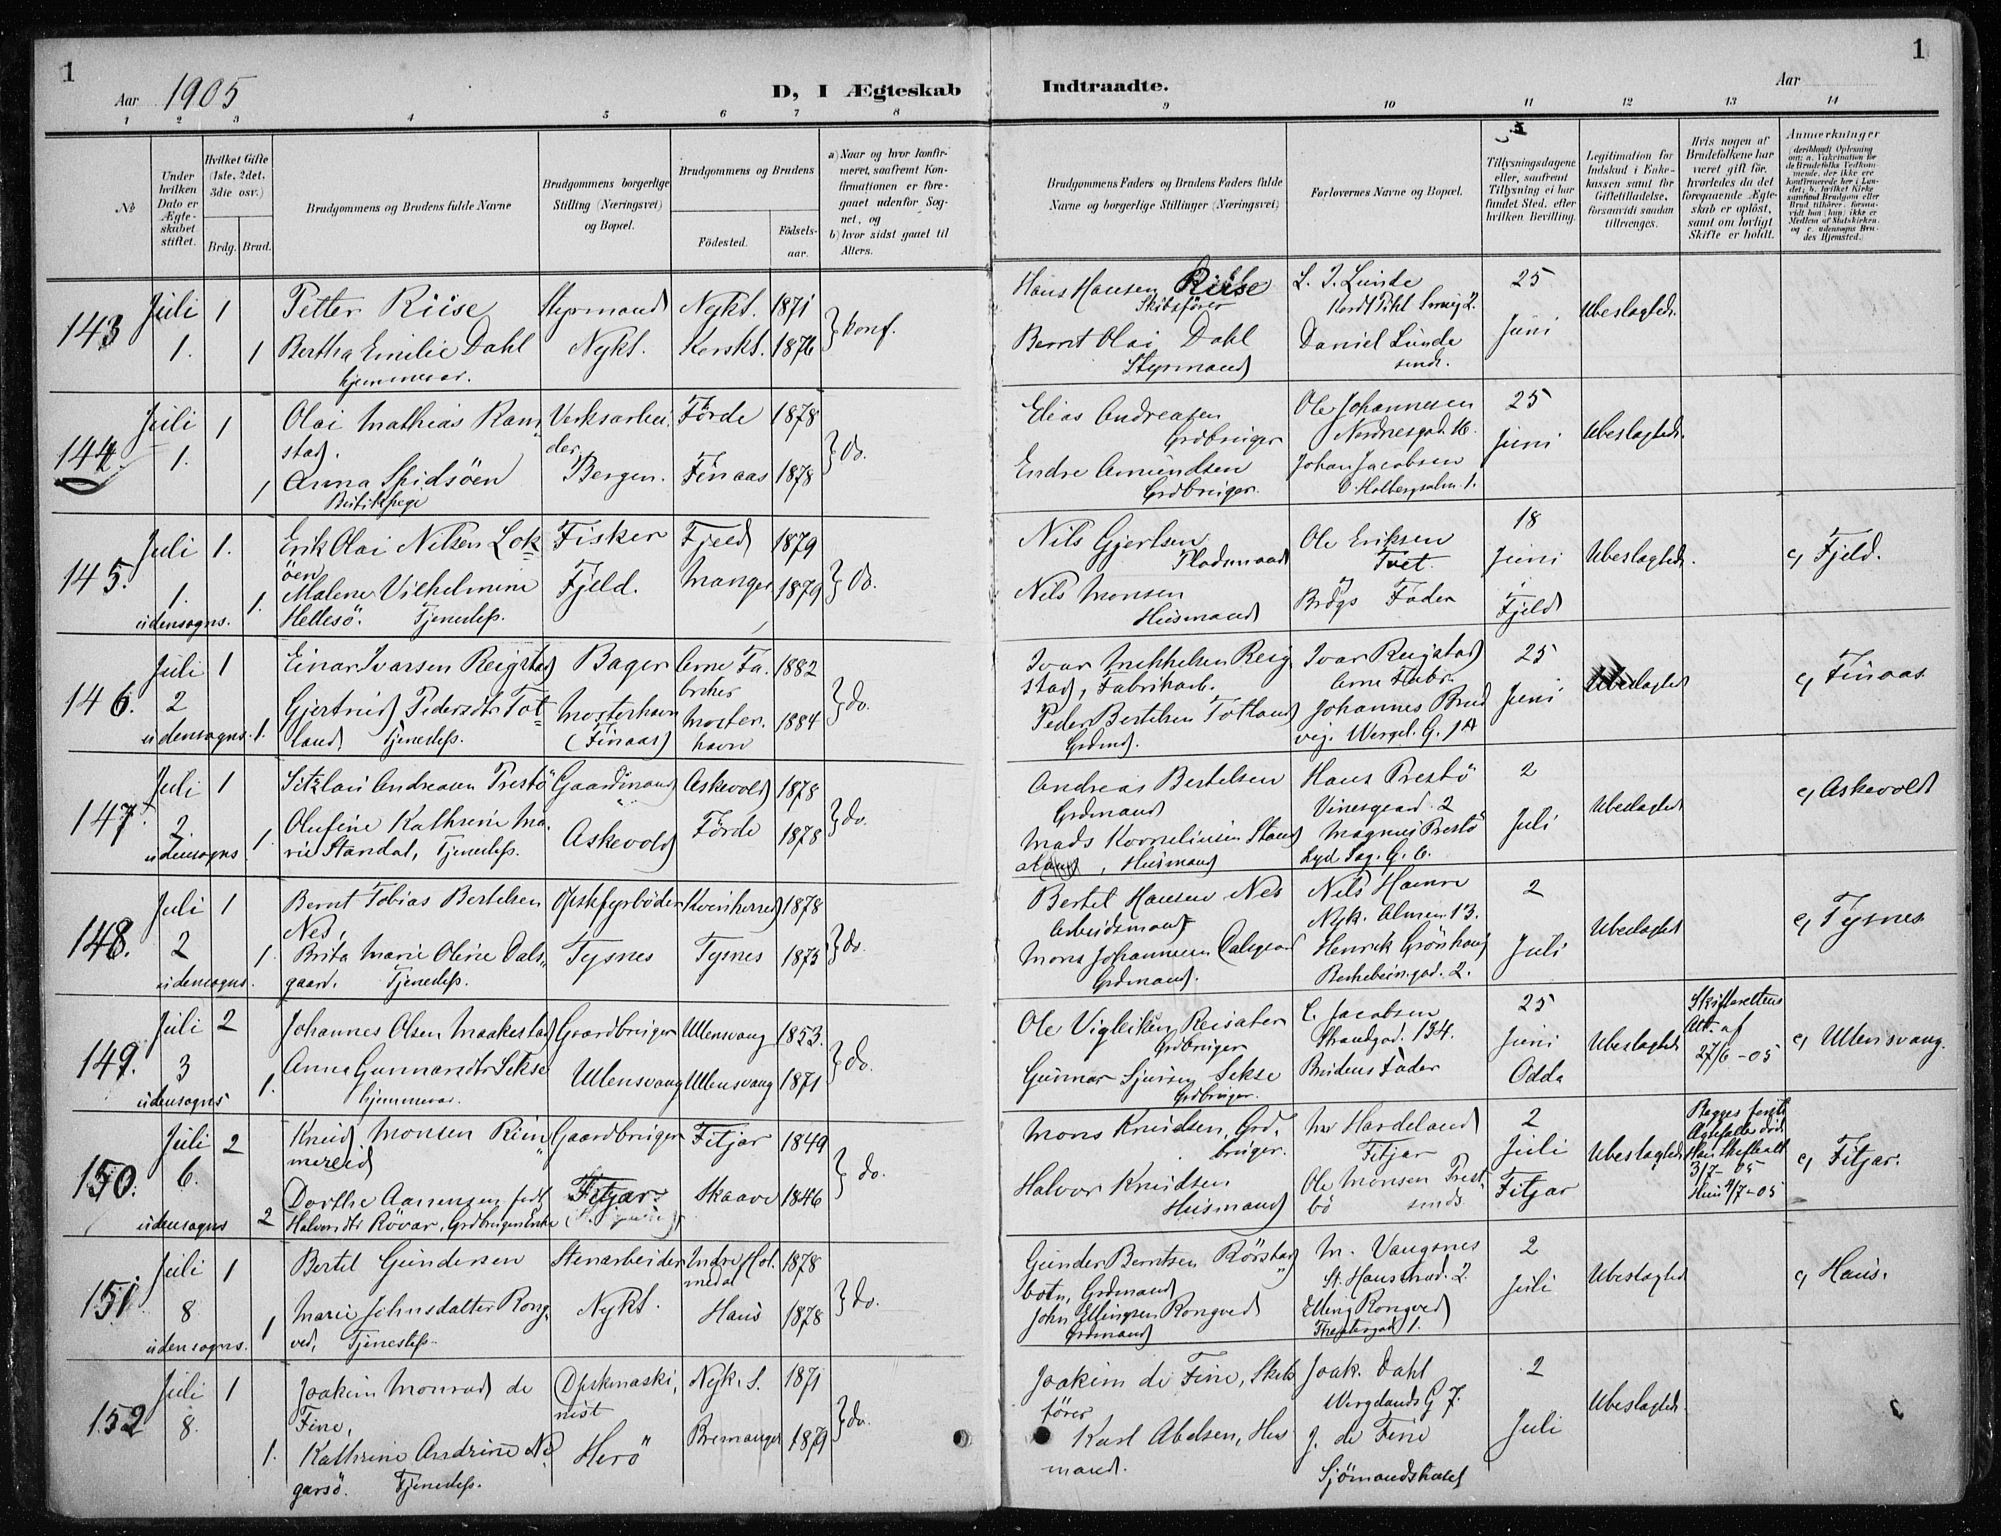 1
1
Aar 1905
D, I Ægteskab Indtraadte.
Aar
1 2 3 4 5 6 7 8 9 10 11 12 13 14
№
Under hvilken Dato er Ægteskabet stiftet.
Hvilket Gifte (1ste, 2det, 3die osv.)
Brdg. Brud.
Brudgommens og Brudens fulde Navne
Brudgommens borgerlige Stilling (Næringsvei) og Bopæl.
Brudgommens og Brudens
Fødested.
Fødsels-aar.
a) Naar og hvor konfirmeret, saafremt Konfirmationen er foregaaet udenfor Sognet, og
b) hvor sidst gaaet til Alters.
Brudgommens Faders og Brudens Faders fulde Navne og borgerlige Stillinger (Næringsvei)
Forlovernes Navne og Bopæl.
Tillysningsdagene eller, saafremt Tillysning ei har fundet Sted, efter hvilken Bevilling.
Legitimation for Indskud i Enkekassen samt for Giftetilladelse, forsaavidt saadan tiltrænges.
Hvis nogen af Brudefolkene har været gift før, hvorledes da det foregaaende Ægteskab er opløst, samt om lovligt Skifte er holdt.
Anmærkninger
143
Juli 1.
1
1
Petter Riise
Bertha Emilie Dahl
hjemmevær.
Styrmand
Nykt.
Nykt. 1871
Korskt. 1876
konf.
Hans Hansen Riise
Skibsfører
Bernt Olai Dahl
Styrmand
L. J. Lunde
Daniel Lunde
smds.
25
Juni
Ubeslægtede.
144.
Juli 1.
1
1
Olai Mathias Ram-
stad.
Anna Spidsöen
Verksarbei-
der
Bergen.
Förde 1878
Finaas 1878
do.
Elias Andreasen
Grdbruger
Endre Amundsen
Grdbruger.
Ole Johannesen
Nordnesgad. 16.
Johan Jacobsen
25
Juni
Ubeslægtede.
145.
Juli 1.
udensogns.
1.
1.
Erik Olai Nilsen Lok-
öen
Malene Vilhelmine
Hellesö. Tjenestep.
Fisker
Fjeld.
Fjeld 1879
Manger 1879
Do.
Nils Gjertsen
Pladsmand
Nils Monsen
Husmand
Ole Eriksen
Tvet.
Brdgs Fader
18
Juni
i
Fjeld
Ubeslægtede.
c) Fjeld.
146.
Juli 2
udensogns.
1
1.
Einar Ivarsen Reigstad
Gjertrud Pedersdtr Tot-
land Tjenestep.
Bager
Mosterhavn
(Finaas)
Arne Fa-
brker 1882
Moster-
havn 1884
do.
Ivar Mikkelsen Reig
stad, Fabrikarb.
Peder Bertelsen Totland
Grdmd.
Ivar Reigstad
Arne Fabr.
Johannes Brud
vig. Wergel. G. 1A
25
Juni
Ubeslægtede
c) Finaas
147.
Juli 2.
udensogns.
1
1.
Andreasen Prestö
Olufine Kathrine Ma-
rie Standal, Tjenestep.
Gaardmand
Askevold
Askevold 1878
Förde 1878
do.
Andreas Bertelsen
Grdmand
Mads Kornelius
, Husmand
Hans Prestö
2
Magnus Prestö
Lyd Sag. G. 6.
2
Juli
Ubeslægtede
c) Askevold
148.
Juli 2
udensogns.
1
1.
Bernt Tobias Bertelsen
Nes,
Brita Marie Oline Dals-
gaard. Tjenestep.
Dpskfyrböder
Tysnes
Kvinherred 1878
Tysnes 1875
do.
Bertel Hansen Nes
Arbeidsmand
Mons Johannesen Dalsgaard
Grdmand.
Nils Hamre
Nyk. Almen. 13.
Henrik Grönhaug
Birkebeinsgad. 2.
2
Juli
Ubeslægtet
c) Tysnes
149.
Juli 3
udensogns
2
1.
Johannes Olsen Maakestad
Anna Gunnarsdtr Sekse
hjemmevær.
Gaardbruger
Ullensvang
Ullensvang 1853.
Ullensvang 1871
do.
Ole Vigleiksen Reisæter
Grdbruger
Gunnar Sjursen Sekse
Grdbruger.
C. Jacobsen
Strandgad. 134.
Brudens Fader
25
Juni
Odda
Ubeslægtede
Skifterettens
Att. af
27/6 - 05
c) Ullensvang.
150.
Juli 6.
udensogns
2
2
Knud Monsen Rim-
mereid
Dorthe Aanensen født
Halvorsdtr Rövær, Grdbrugers Enke
Gaardbruger
Fitjar.
Fitjar 1849
Skaare 1846
do.
Mons Knudsen, Grd.
bruger.
Halvor Knudsen
Husmand
Hardeland
Fitjar
Ole Monsen Prest-
bö smds
2
Juli
Fitjar
Ubeslægtede
Begges forrige
Ægtefælle död.
Han Skifteatt
3/7 - 05
Hun 4/7 - 05
c) Fitjar.
151
Juli 8
udensogns.
1
1
Bertel Gundersen
Marie Johnsdatter Rong-
ved, Tjenestep.
Stenarbeider
Nykt.
Indre Hol-
medal 1878
Haus 1878
do.
Gunder Berntsen Rörstad
botn, Grdmand
John Ellingsen Rongved
Grdmand
M. Vangsnes
St. Hansstræd. 2.
Elling Rongved
Theatergad 1.
2
Juli
Ubeslægted
c) Haus.
152
Juli 8.
1
1.
Joakim Monrad de
Fine,
Kathrine Andrine Ni-
garsö. Tjenestep.
Dpskmaski-
nist
Herö
Nyk. S. 1871
Bremanger 1879
do.
Joakim de Fine, Skibs
fører
Karl Abelsen, Hus
mand.
Joak. Dahl
Wergelands G 7.
J. de Fine
Sjömandshotel
2
Juli
Ubeslægtede.